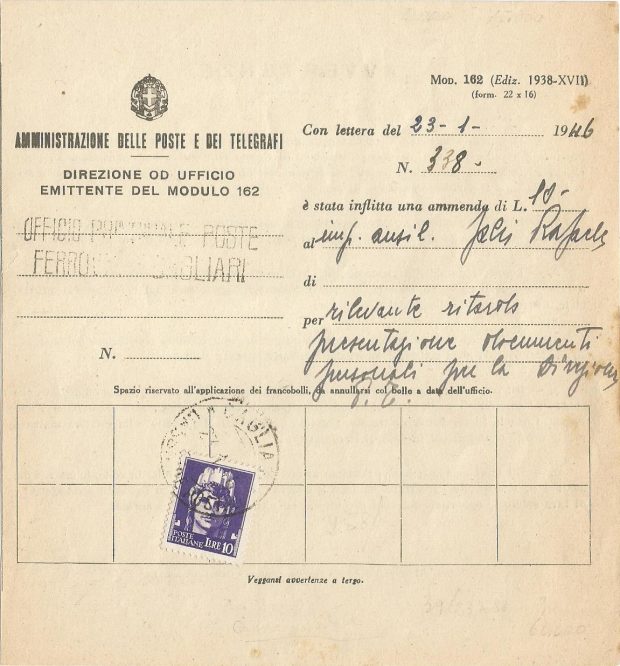 MOD. 162 (Ediz. 1938-XVII)
(form. 22 x 16)
AMMINISTRAZIONE DELLE POSTE E DEI TELEGRAFI
DIREZIONE OD UFFICIO
EMITTENTE DEL MODULO 162
UFFICIO PRINCIPALE POSTE
FERROVIA CAGLIARI
N.
Con lettera del 23-1- 1946
N. 338.-
è stata inflitta una ammenda di L. 10-
al imp. ausil. Rafaele
di
per rilevante ritardo
presentazione documenti
personali per la Direzione
Spazio riservato all'applicazione dei francobolli, da annullarsi col bollo a data dell'ufficio.
CAGLIARI
POSTE
ITALIANE LIRE 10
Veggansi avvertenze a tergo.